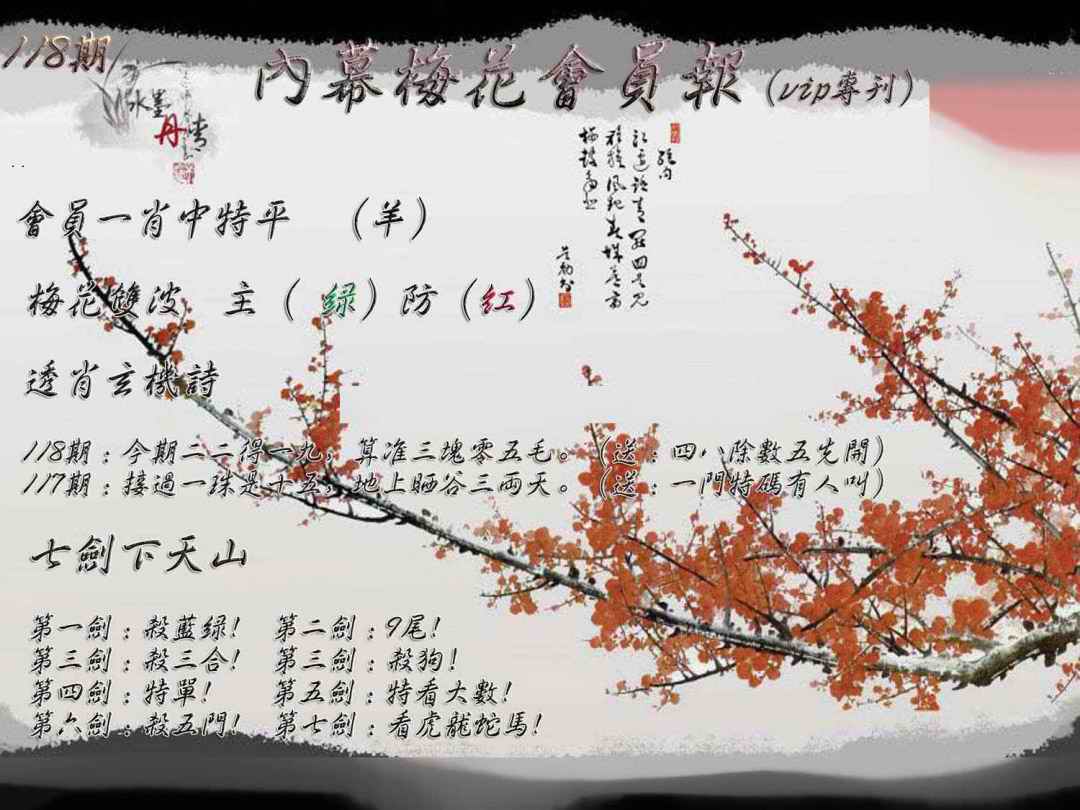 118期
內幕梅花會員報(vip專刊)
水墨
丹青
會員一肖中特平 (羊)
梅花雙波 主(绿)防(红)
透肖玄機詩
118期:今期二二得一九,算准三塊零五毛。(送:四八除數五先開)
117期:接過一珠是十五,地上晒谷三兩天。(送:一門特碼有人叫)
七劍下天山
第一劍:殺藍绿! 第二劍:9尾!
第三劍:殺三合! 第三劍:殺狗!
第四劍:特單! 第五劍:特看大數!
第六劍:殺五門! 第七劍:看虎龍蛇馬!